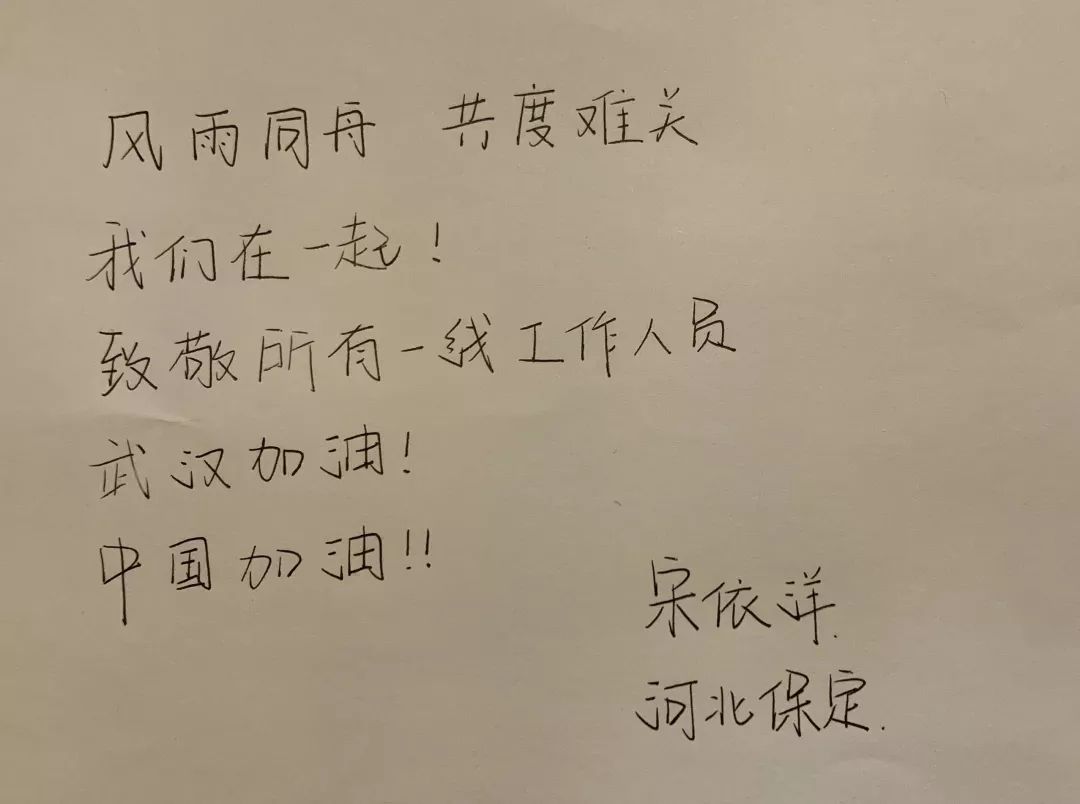 风雨同舟 共度难关
我们在一起!
致敬所有一线工作人员
武汉加油!
中国加油!!
宋依洋.
河北保定.